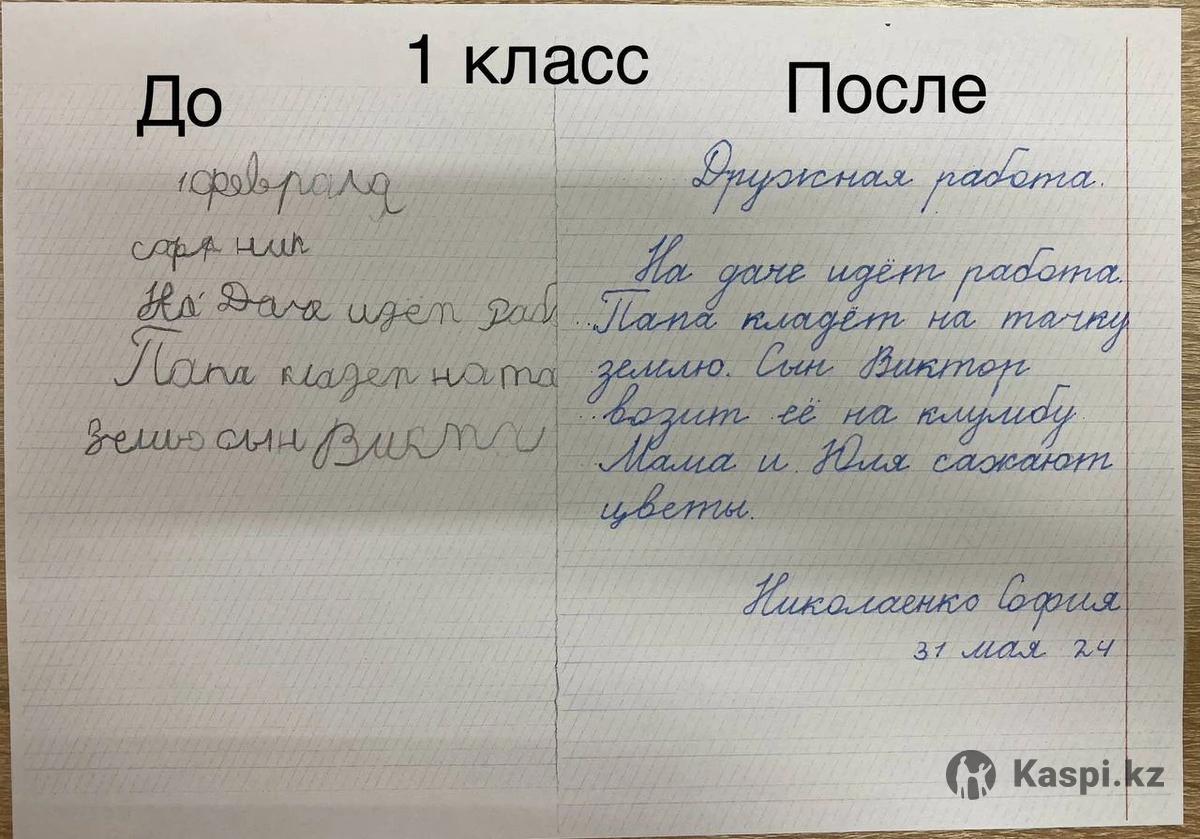 1 класс
До
1 февраля
На Даче идёт раб
Папа кладет на та
землю сын Викт
После
Дружная работа.
На даче идёт работа.
Папа кладёт на тачку
землю. Сын Виктор
возит её на клумбу
Мама и Юля сажают
цветы.
Николаенко София
31 мая 24
Kaspi.kz